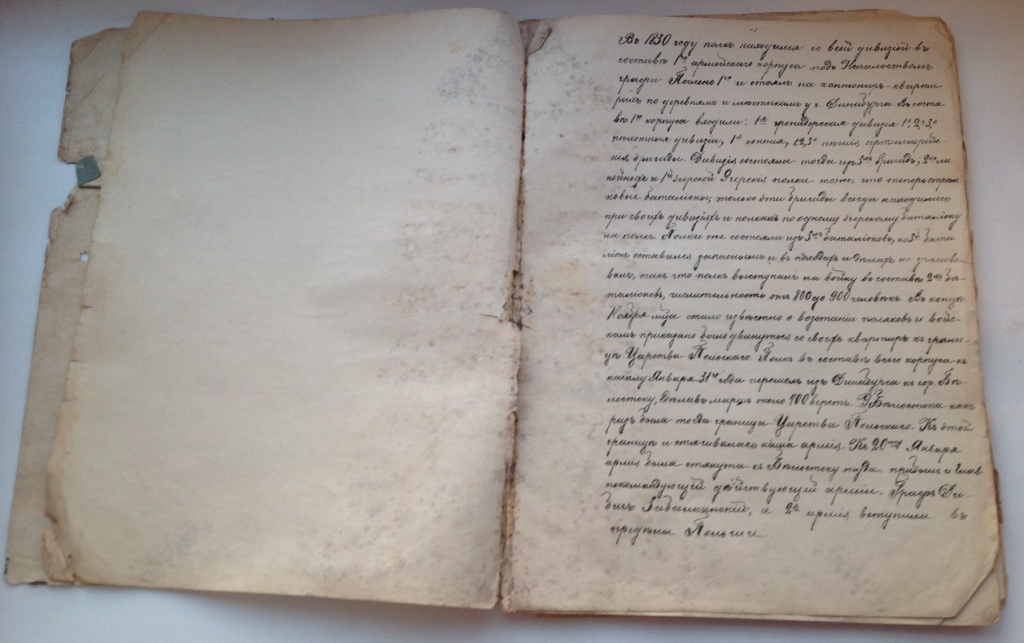 Въ 1830 году полкъ находился со всей дивизіей въ
составѣ 1го армейскаго корпуса подъ Началоствомъ
графа Палена 1го и стоялъ на кантонир-кварти
рахъ по деревнямъ и мѣстечкамъ у г. Динабурга. Въ соста
вѣ 1го корпуса входили: 1я гренадерская дивизія 1я 2я 3я
пѣхотныя дивизіи, 1я конная, 1,2,3я пѣшія артиллерійс
кія бригады. Дивизія состояла тогда изъ 3хъ бригадъ; 2хъ ли
нейныхъ и 1й Егерской Егерскіе полки тоже, что теперь стрѣл
ковые баталіоны; только эти бригады всегда находились
при своихъ дивизіяхъ и полкахъ по одному егерскому баталіону
на полкъ. Полки же состояли изъ 3хъ баталіоновъ, но 3й бата
ліонъ оставался запаснымъ и въ походахъ и дѣлахъ не участво
валъ, такъ что полкъ выступалъ на войну въ составѣ 2хъ ба
таліоновъ, числительность отъ 800 до 900 человѣкъ. Въ концѣ
Ноября мѣца стало извѣстно о возстаніи поляковъ и войс
камъ приказано было двинуться со своихъ квартиръ къ грани
цѣ Царства Польскаго. Полкъ въ составѣ всего корпуса къ
началу Января 31го года перешелъ изъ Динабурга къ гор. Бѣ
лостоку, сдѣлавъ маршъ около 400 верстъ. У Бѣлостока какъ
разъ была тогда граница Царства Польскаго. Къ этой
границѣ и стягивалась наша армія. Къ 20му Января
армія была стянута къ Бѣлостоку туда прибылъ и Глав
нокомандующій дѣйствующей арміи. Графъ Ди-
бичъ Забалканскій, и 2го армія вступила въ
предѣлы Польши.